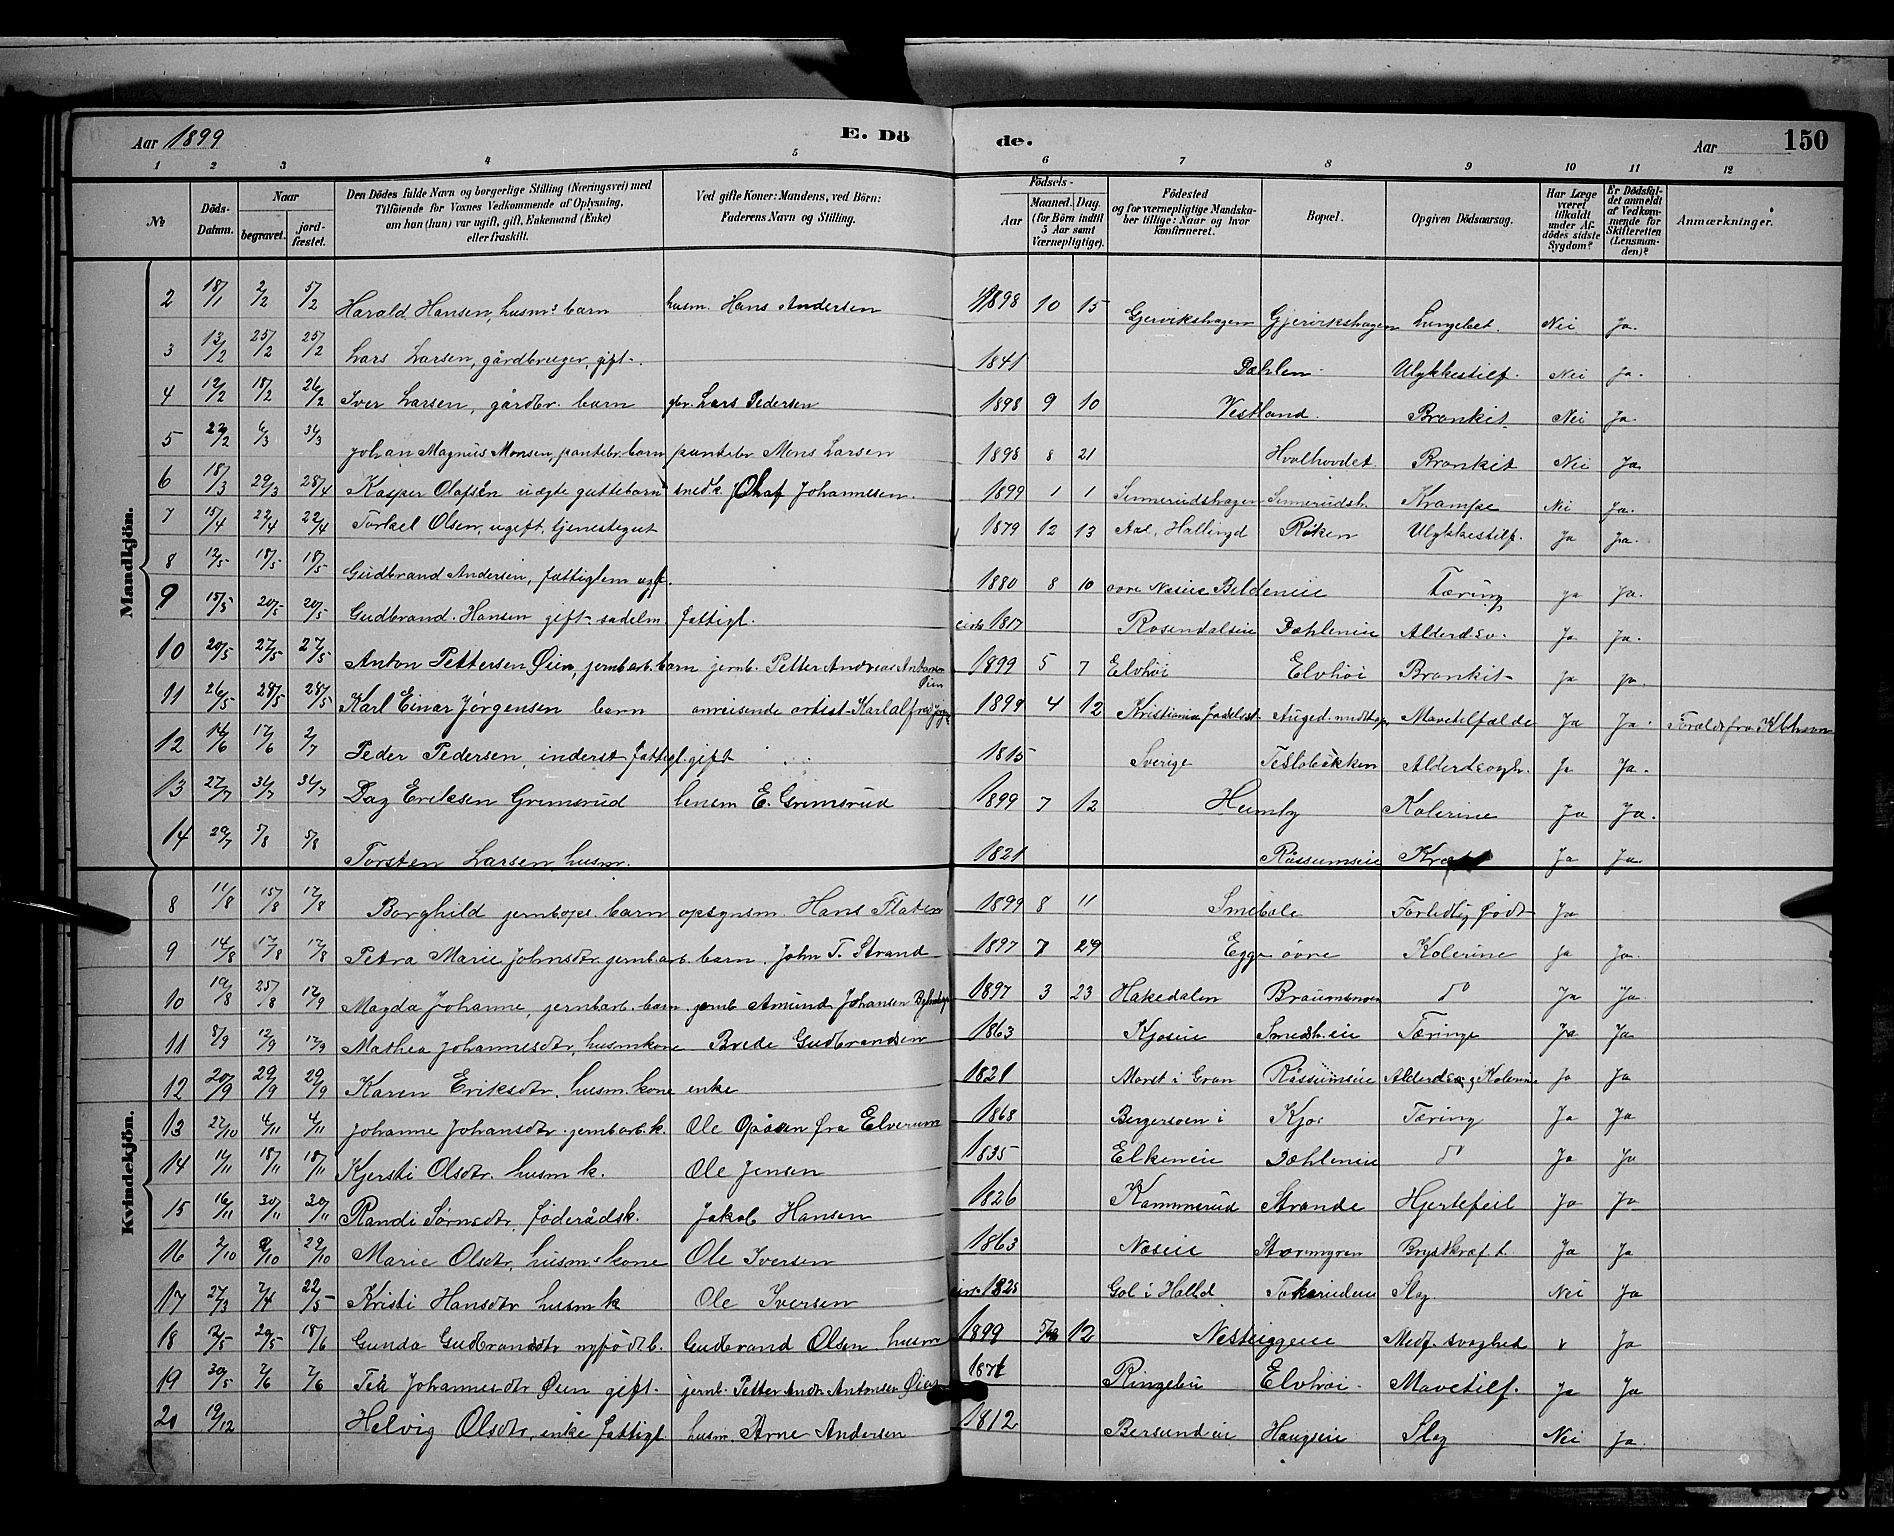 Aar 1899 E. Dö de. Aar 150
1 2 3 4 5 6 7 8 9 10 11 12
№ Döds-Datum. Naar begravet. jord-fæstet. Den Dödes fulde Navn og borgerlige Stilling (Næringsvei) med Tilföiende for Voxnes Vedkommende af Oplysning, om han (hun) var ugift, gift, Enkemand (Enke) eller fraskilt. Ved gifte Koner: Mandens, ved Börn: Faderens Navn og Stilling. Födsels- Aar Maaned. Dag. (for Börn indtil 5 Aar samt Værnepligtige). Födested og for værnepligtige Mandskaber tillige: Naar og hvor konfirmeret. Bopæl. Opgiven Dödsaarsag. Har Læge været tilkaldt under Afdödes sidste Sygdom? Er Dödsfaldet anmeldt af Vedkommende for Skifteretten (Lensmanden)? Anmærkninger.
Mandkjön.
2 18/1 2/2 5/2 Harald Hansen, husms barn husm. Hans Andersen 1898 10 15 Gjervikshagen Gjervikshagen Lungebet. Nei Ja.
3 13/2 25/2 25/2 Lars Larsen, gårdbruger, gift. 1841 Dæhlen Ulykkestilf. Nei Ja.
4 12/2 18/2 26/2 Iver Larsen, gårdbr. barn gbr. Lars Pedersen 1898 9 10 Vestland. Bronkit. Nei Ja.
5 6/3 Johan Magnus Monsen, pantebr. barn pantebr Mons Larsen 1898 8 21 Hvalhovdet Bronkit Nei Ja
6 18/3 29/3 28/4 Kasper Olafsen uægte guttebarn snedk. Olaf Johannesen. 1899 1 1 Sinnerudshagen Sinnerudsh. Krampe Nei Ja.
7 15/4 22/4 22/4 Torkel Olsen, ugift, tjenestegut 1879 12 13 Aal, Hallingd Röken Ulykkestilf. Ja Ja.
8 12/5 18/5 18/5 Gudbrand Andersen, fattiglem ugft. 1880 8 10 Næseie Beldeneie Tæring Ja Ja.
9 15/5 20/5 20/5 Gudbrand Hansen gift sadelm fattigl. 1817 Rosendalseie Dæhleneie Alderdsv. Ja Ja.
10 20/5 27/5 27/5 Anton Pettersen Øien, jernbarb. barn jernb. Petter Andreas Antonsen Øien 1899 5 7 Elvhöi Elvhöi Bronkit Ja Ja.
11 26/5 28/5 28/5 Karl Einar Jörgensen barn omreisende artist Karl Alfred 1899 4 12 Kristiania fødselsst Mavetilfælde Ja Ja. Foræld. fra Kbhavn
12 14/6 17/6 2/7 Peder Pedersen, inderst fattigl. gift 1815 Sverige Teslobäkken Ja Ja.
13 27/7 31/7 31/7 Dag Eriksen Grimsrud lensm E. Grimsrud 1899 7 12 Humby Kolerine Ja Ja.
14 29/7 5/8 5/8 Torsten Larsen husm. 1821 Råssumseie Kræft Ja Ja
Kvindekjön.
8 11/8 15/8 17/8 Borghild jernbops. barn opsynsm. Hans Flaten 1899 8 11 Smebøle Fortidlig født Ja
9 14/8 17/8 17/8 Petra Marie Johnsdtr jernbarb. barn. John T. Strand 1897 7 29 Egge övre Kolerine Ja Ja.
10 19/8 25/8 17/9 Magda Johanne, jernbarb. barn jernb Amund Johansen 1897 3 23 Hakedalen do Ja Ja
11 8/9 12/9 17/9 Mathea Johannesdtr, husmkone Brede Gudbrandsen 1863 Kjoseie Smedsh.eie Tæringe Ja Ja
12 20/9 29/9 29/9 Karen Eriksdtr. husm.kone enke 1821 Morst i Gran Råssumseie Alderdsv. og Kolerine Ja Ja
13 27/10 4/11 4/11 Johanne Johansdtr. jernbarb.k. Ole Opåsen fra Elverum 1868 Bergersoen i Kjos Tæring Ja Ja
14 11/11 18/11 18/11 Kjersti Olsdtr. husm.k. Ole Jensen 1835 Elkeneie Dæhleneie do Ja Ja
15 16/11 30/11 30/11 Randi Sörnsdtr, föderådsk. Jakob Hansen 1826 Kammerud Strande Hjertefeil Ja Ja
16 2/10 8/10 29/10 Marie Olsdtr, husm.s kone Ole Iversen 1863 Næseie Stormyren Brystkræft. Ja Ja
17 27/3 7/4 22/5 Kristi Hansdtr husm k Ole Iversen 1825 Gol i Halld Tokerudeie Slag Nei Ja
18 12/5 20/5 18/6 Gunda Gudbrandsdtr nyfödt b. Gudbrand Olsen husm 1899 5 12 Nestriggeie Medf. svaghed v Ja
19 30/5 7/6 7/6 Tea Johannesdtr Øien gift. jernb. Petter Andr Antonsen Øien 1871 Ringebu Elvhöi Mavetilf. Ja Ja
20 19/12 Helvig Olsdtr, enke fattigl husm. Arne Andersen 1812 Bersundeie Haugseie Slag Nei Ja.